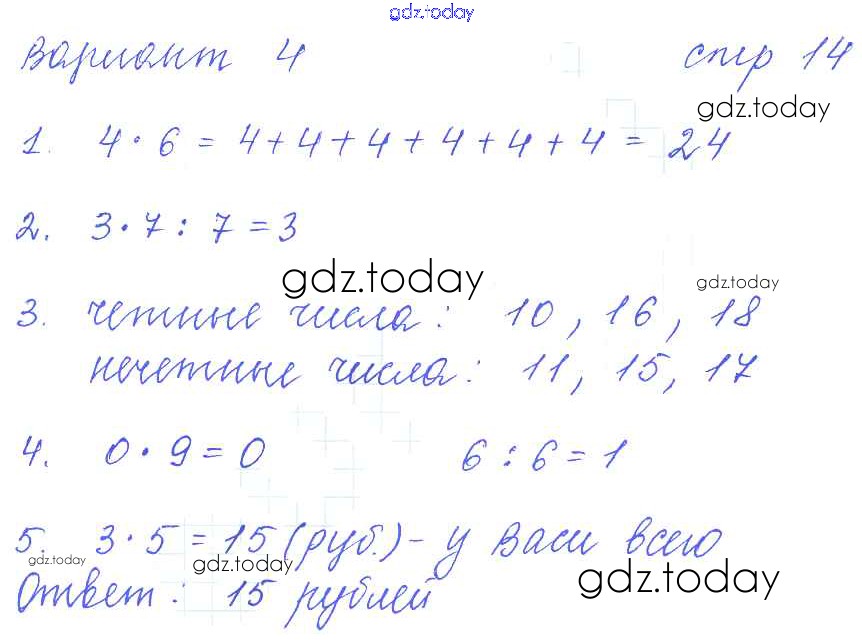 gdz.today
Вариант 4 стр 14
gdz.today
1. 4 · 6 = 4+4+4+4+4+4 = 24
2. 3·7 : 7 = 3
gdz.today
gdz.today
3. четные числа: 10, 16, 18
нечетные числа: 11, 15, 17
4. 0 · 9 = 0 6 : 6 = 1
5. 3 · 5 = 15 (руб.) - у Васи всего
gdz.today gdz.today gdz.today
Ответ: 15 рублей